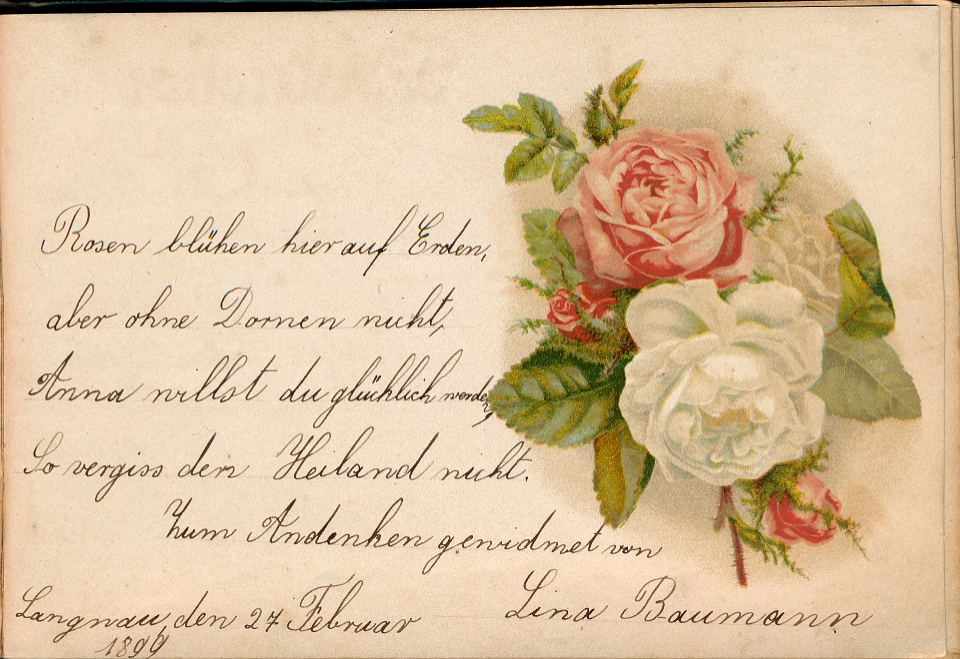 Rosen blühen hier auf Erden,
aber ohne Dornen nicht,
Anna willst du glücklich werden,
So vergiss den Heiland nicht.
Zum Andenken gewidmet von
Langnau, den 27 Februar
1899
Lina Baumann